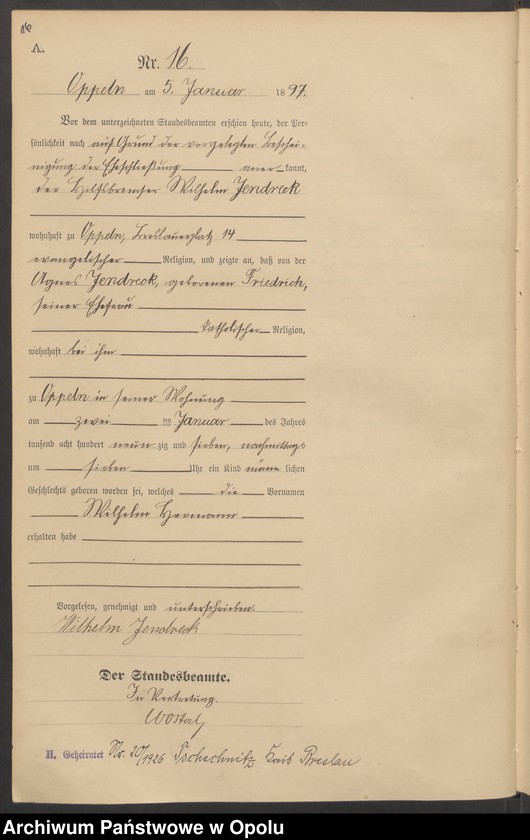 16
A.
Nr. 16.
Oppeln am 5. Januar 1897.
Vor dem unterzeichneten Standesbeamten erschien heute, der Per-
sönlichkeit nach auf Grund der vorgelegten Beschei-
nigung der Eheschließung aner kannt,
der Hilfsbremser Wilhelm Jendreck
wohnhaft zu Oppeln, Breslauerplatz 14
evangelischer Religion, und zeigte an, daß von der
Agnes Jendreck, geborenen Friedrich,
seiner Ehefrau
katholischer Religion,
wohnhaft bei ihm
zu Oppeln in seiner Wohnung
am zwei ten Januar des Jahres
tausend acht hundert neun zig und sieben, nachmittags
um sieben Uhr ein Kind männ lichen
Geschlechts geboren worden sei, welches die Vornamen
Wilhelm Hermann
erhalten habe
Vorgelesen, genehmigt und unterschrieben.
Wilhelm Jendreck
Der Standesbeamte.
In Vertretung.
II. Geheiratet Nr. 20/1926 Tschechnitz Kreis Breslau
Archiwum Państwowe w Opolu